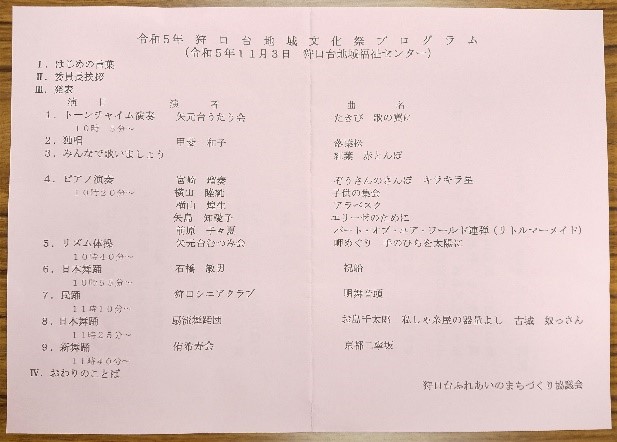 令和5年 狩口台地域文化祭プログラム
（令和5年11月3日 狩口台地域福祉センター）
Ⅰ. はじめの言葉
Ⅱ. 委員長挨拶
Ⅲ. 発表
演 者 曲 名
1. トーンチャイム演奏 矢元台うたう会 たきび 歌の翼に
10時 5分～
2. 独唱 落葉松
3. みんなで歌いましょう 紅葉 赤とんぼ
4. ピアノ演奏 宮崎 ぞうさんのさんぽ キラキラ星
10時20分～ 横山 子供の集会
横山 アラベスク
矢島 エリーゼのために
前原 パート・オブ・ユア・ワールド連弾（リトルマーメイド）
5. リズム体操 矢元台むつみ会 岬めぐり 手のひらを太陽に
10時40分～
6. 日本舞踊 石橋 祝船
10時55分～
7. 民踊 狩口シニアクラブ 明舞音頭
11時10分～
8. 日本舞踊 お島千太郎 私しゃ糸屋の器量よし 古城 奴っさん
11時25分～
9. 新舞踊 京都二寧坂
11時40分～
Ⅳ. おわりのことば
狩口台ふれあいのまちづくり協議会